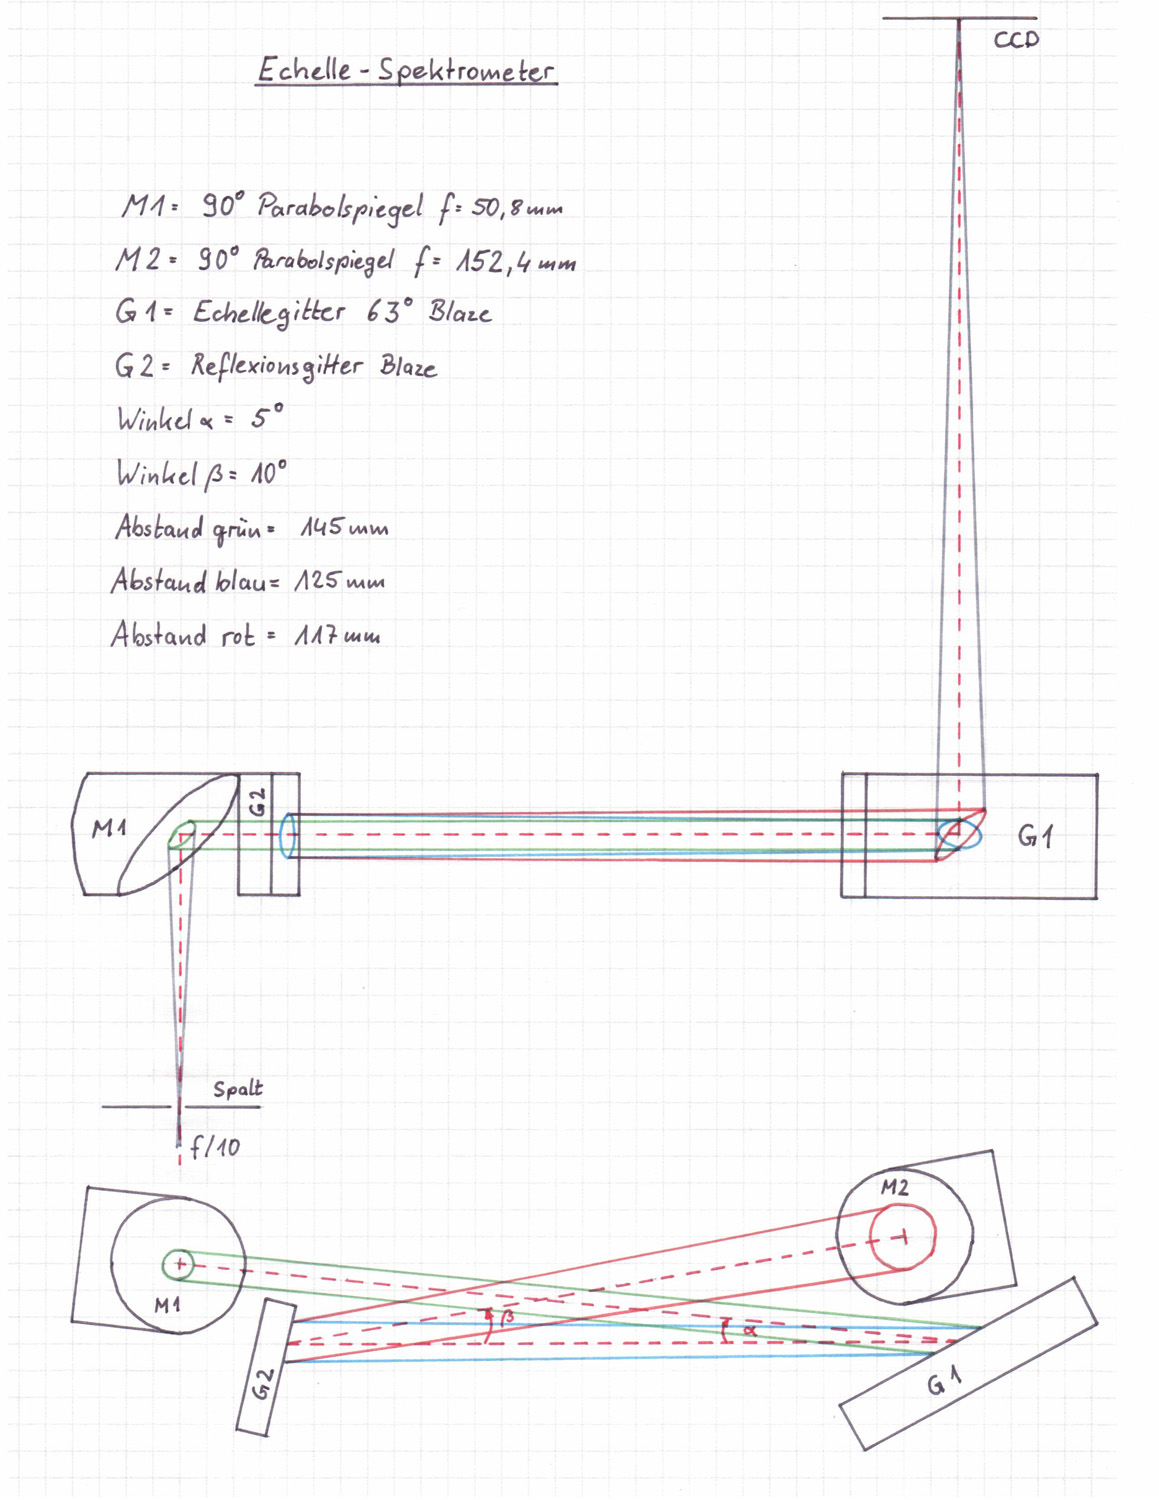 CCD
Echelle - Spektrometer
M1= 90° Parabolspiegel f= 50,8mm
M2= 90° Parabolspiegel f= 152,4mm
G1= Echellegitter 63° Blaze
G2= Reflexionsgitter Blaze
Winkel α = 5°
Winkel β = 10°
Abstand grün= 145mm
Abstand blau= 125mm
Abstand rot = 117mm
M1
G2
G1
Spalt
f/10
M2
M1
β
α
G2
G1